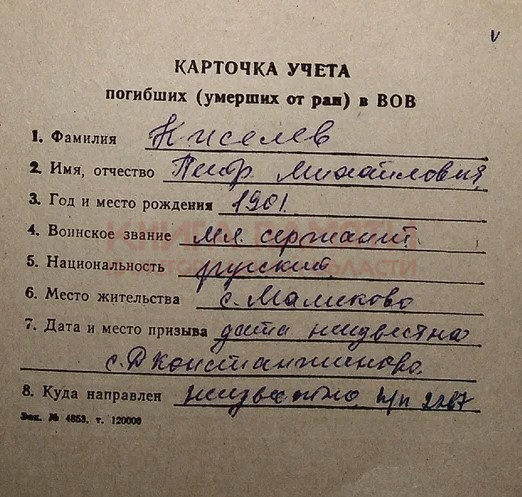 v
КАРТОЧКА УЧЕТА
погибших (умерших от ран) в ВОВ
1. Фамилия Киселев
2. Имя, отчество Петр Михайлович
3. Год и место рождения 1901.
4. Воинское звание мл. сержант
5. Национальность русский
6. Место жительства с. Маликово
7. Дата и место призыва дата неизвестна
с. Д Константиново
8. Куда направлен неизвестно п/п 2267
Зак. № 4853. т. 120000